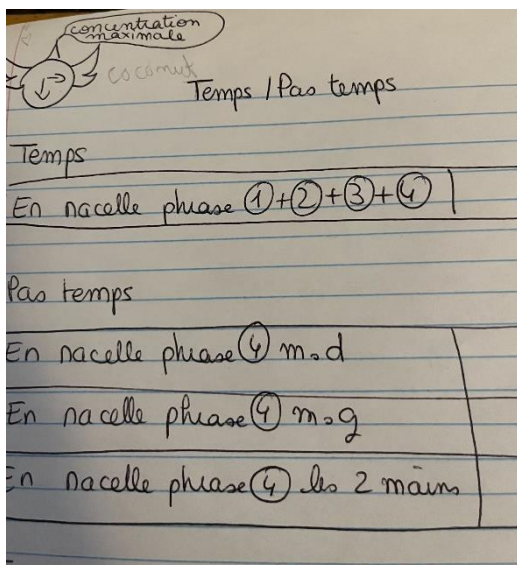 concentration
maximale
coconut
Temps / Pas temps
Temps
En nacelle phrase ①+②+③+④
Pas temps
En nacelle phrase ④ m.d
En nacelle phrase ④ m.g
En nacelle phrase ④ les 2 mains